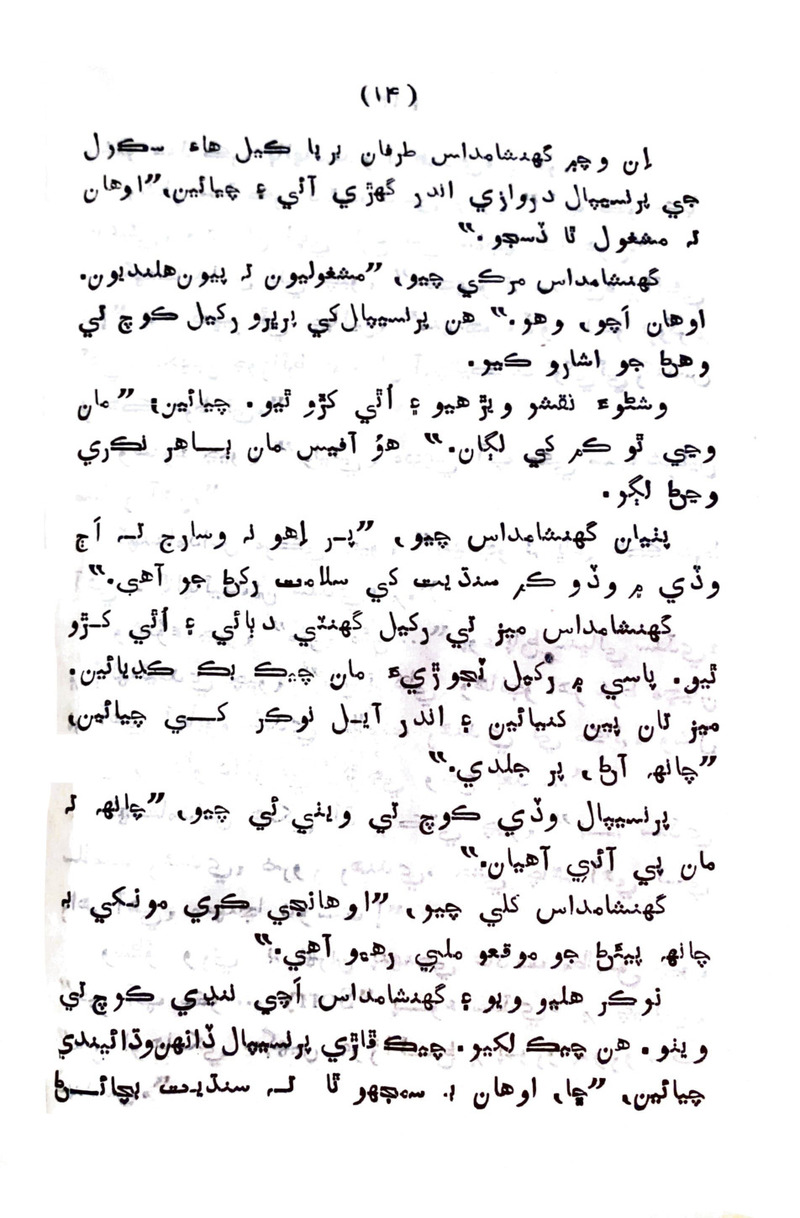 (۱۴)
اِن وچ۾ گهنشامداس طرفان برپا ڪيل هاءِ سڪول
جي پرنسيپال دروازي اندر گهڙي آئي ۽ چيائين، ”اوهان
تہ مشغول ٿا ڏسجو.“
گهنشامداس مرڪي چيو، ”مشغوليون تہ پيون هلنديون.
اوهان اَچو، وهو.“ هن پرنسيپال کي ٻريرو رکيل ڪوچ تي
وهڻ جو اشارو ڪيو.
وشڻوءَ نقشو ويڙهيو ۽ اُٿي کڙو ٿيو. چيائين؛ ”مان
وڃي ٿو ڪم کي لڳان.“ هوُ آفيس مان ٻـــاهر نڪري
وڃڻ لڳو.
پٺيان گهنشامداس چيو، ”پـر اِهو نہ وسارج تـہ اَڄ
وڏي ۾ وڏو ڪم سنڌيت کي سلامت رکڻ جو آهي.“
گهنشامداس ميز تي رکيل گهنٽي دٻائي ۽ اُٿي کـڙو
ٿيو. پاسي ۾ رکيل تجوڙيءَ مان چيڪ بڪ ڪڍيائين.
ميز تان پين کنيائين ۽ اندر آيـل نوڪر کـــي چيائين،
”چانهہ آڻ، پر جلدي.“
پرنسيپال وڏي ڪوچ تي ويٺي ئي چيو، ”چانهہ تہ
مان پي آئي آهيان.“
گهنشامداس کلي چيو، ”اوهانجي ڪري مونکي بہ
چانهہ پيئڻ جو موقعو ملي رهيو آهي.“
نوڪر هليو ويو ۽ گهنشامداس اَچي ننڍي ڪوچ تي
ويٺو. هن چيڪ لکيو. چيڪ ڦاڙي پرنسيپال ڏانهن وڌائيندي
چيائين، ”ڇا، اوهان بہ سمجهو ٿا تـہ سنڌيت بچائـــڻ